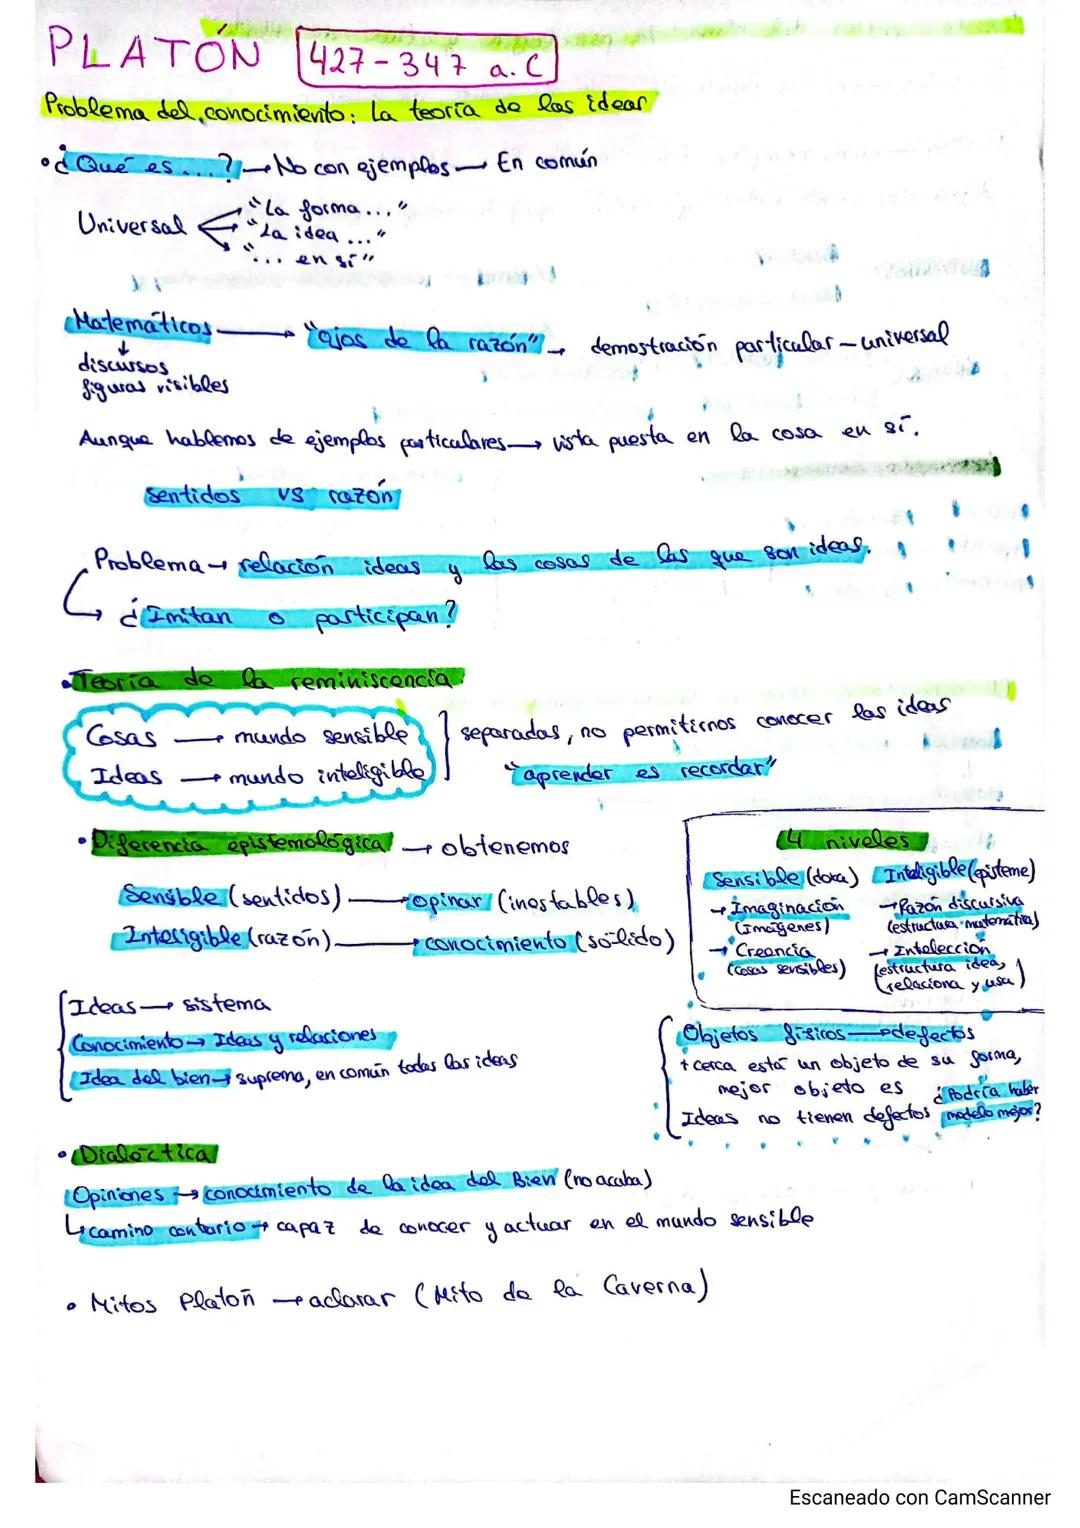 PLATÓN 427-347 a.C
Problema del conocimiento: La teoría de las ideas
• ¿Qué es...? → No con ejemplos → En común
"La forma..."
Universal "La idea ..."
"... en sí"
Matemáticos → "ojos de la razón" → demostración particular - universal
↓
discursos
figuras visibles
Aunque hablemos de ejemplos particulares → vista puesta en la cosa en sí.
sentidos vs razón
Problema → relación ideas y las cosas de las que son ideas.
→ ¿Imitan o participan?
• Teoría de la reminiscencia
Cosas → mundo sensible
Ideas → mundo inteligible
separadas, no permitirnos conocer las ideas
"aprender es recordar"
• Diferencia epistemológica → obtenemos
Sensible (sentidos) → opinar (inestables)
Inteligible (razón) → conocimiento (sólido)
4 niveles
Sensible (doxa) Inteligible (episteme)
→ Imaginación → Razón discursiva
(Imágenes) (estructura matemática)
→ Creencia → Intelección
(cosas sensibles) (estructura idea,
relaciona y usa)
Ideas → sistema
Conocimiento → Ideas y relaciones
Idea del bien → suprema, en común todas las ideas
Objetos físicos → defectos
+ cerca está un objeto de su forma,
mejor objeto es
Ideas no tienen defectos ¿Podría haber
modelo mejor?
• Dialéctica
Opiniones → conocimiento de la idea del Bien (no acaba)
↳ camino contario → capaz de conocer y actuar en el mundo sensible
• Mitos Platón → aclarar (Mito de la Caverna)
Escaneado con CamScanner